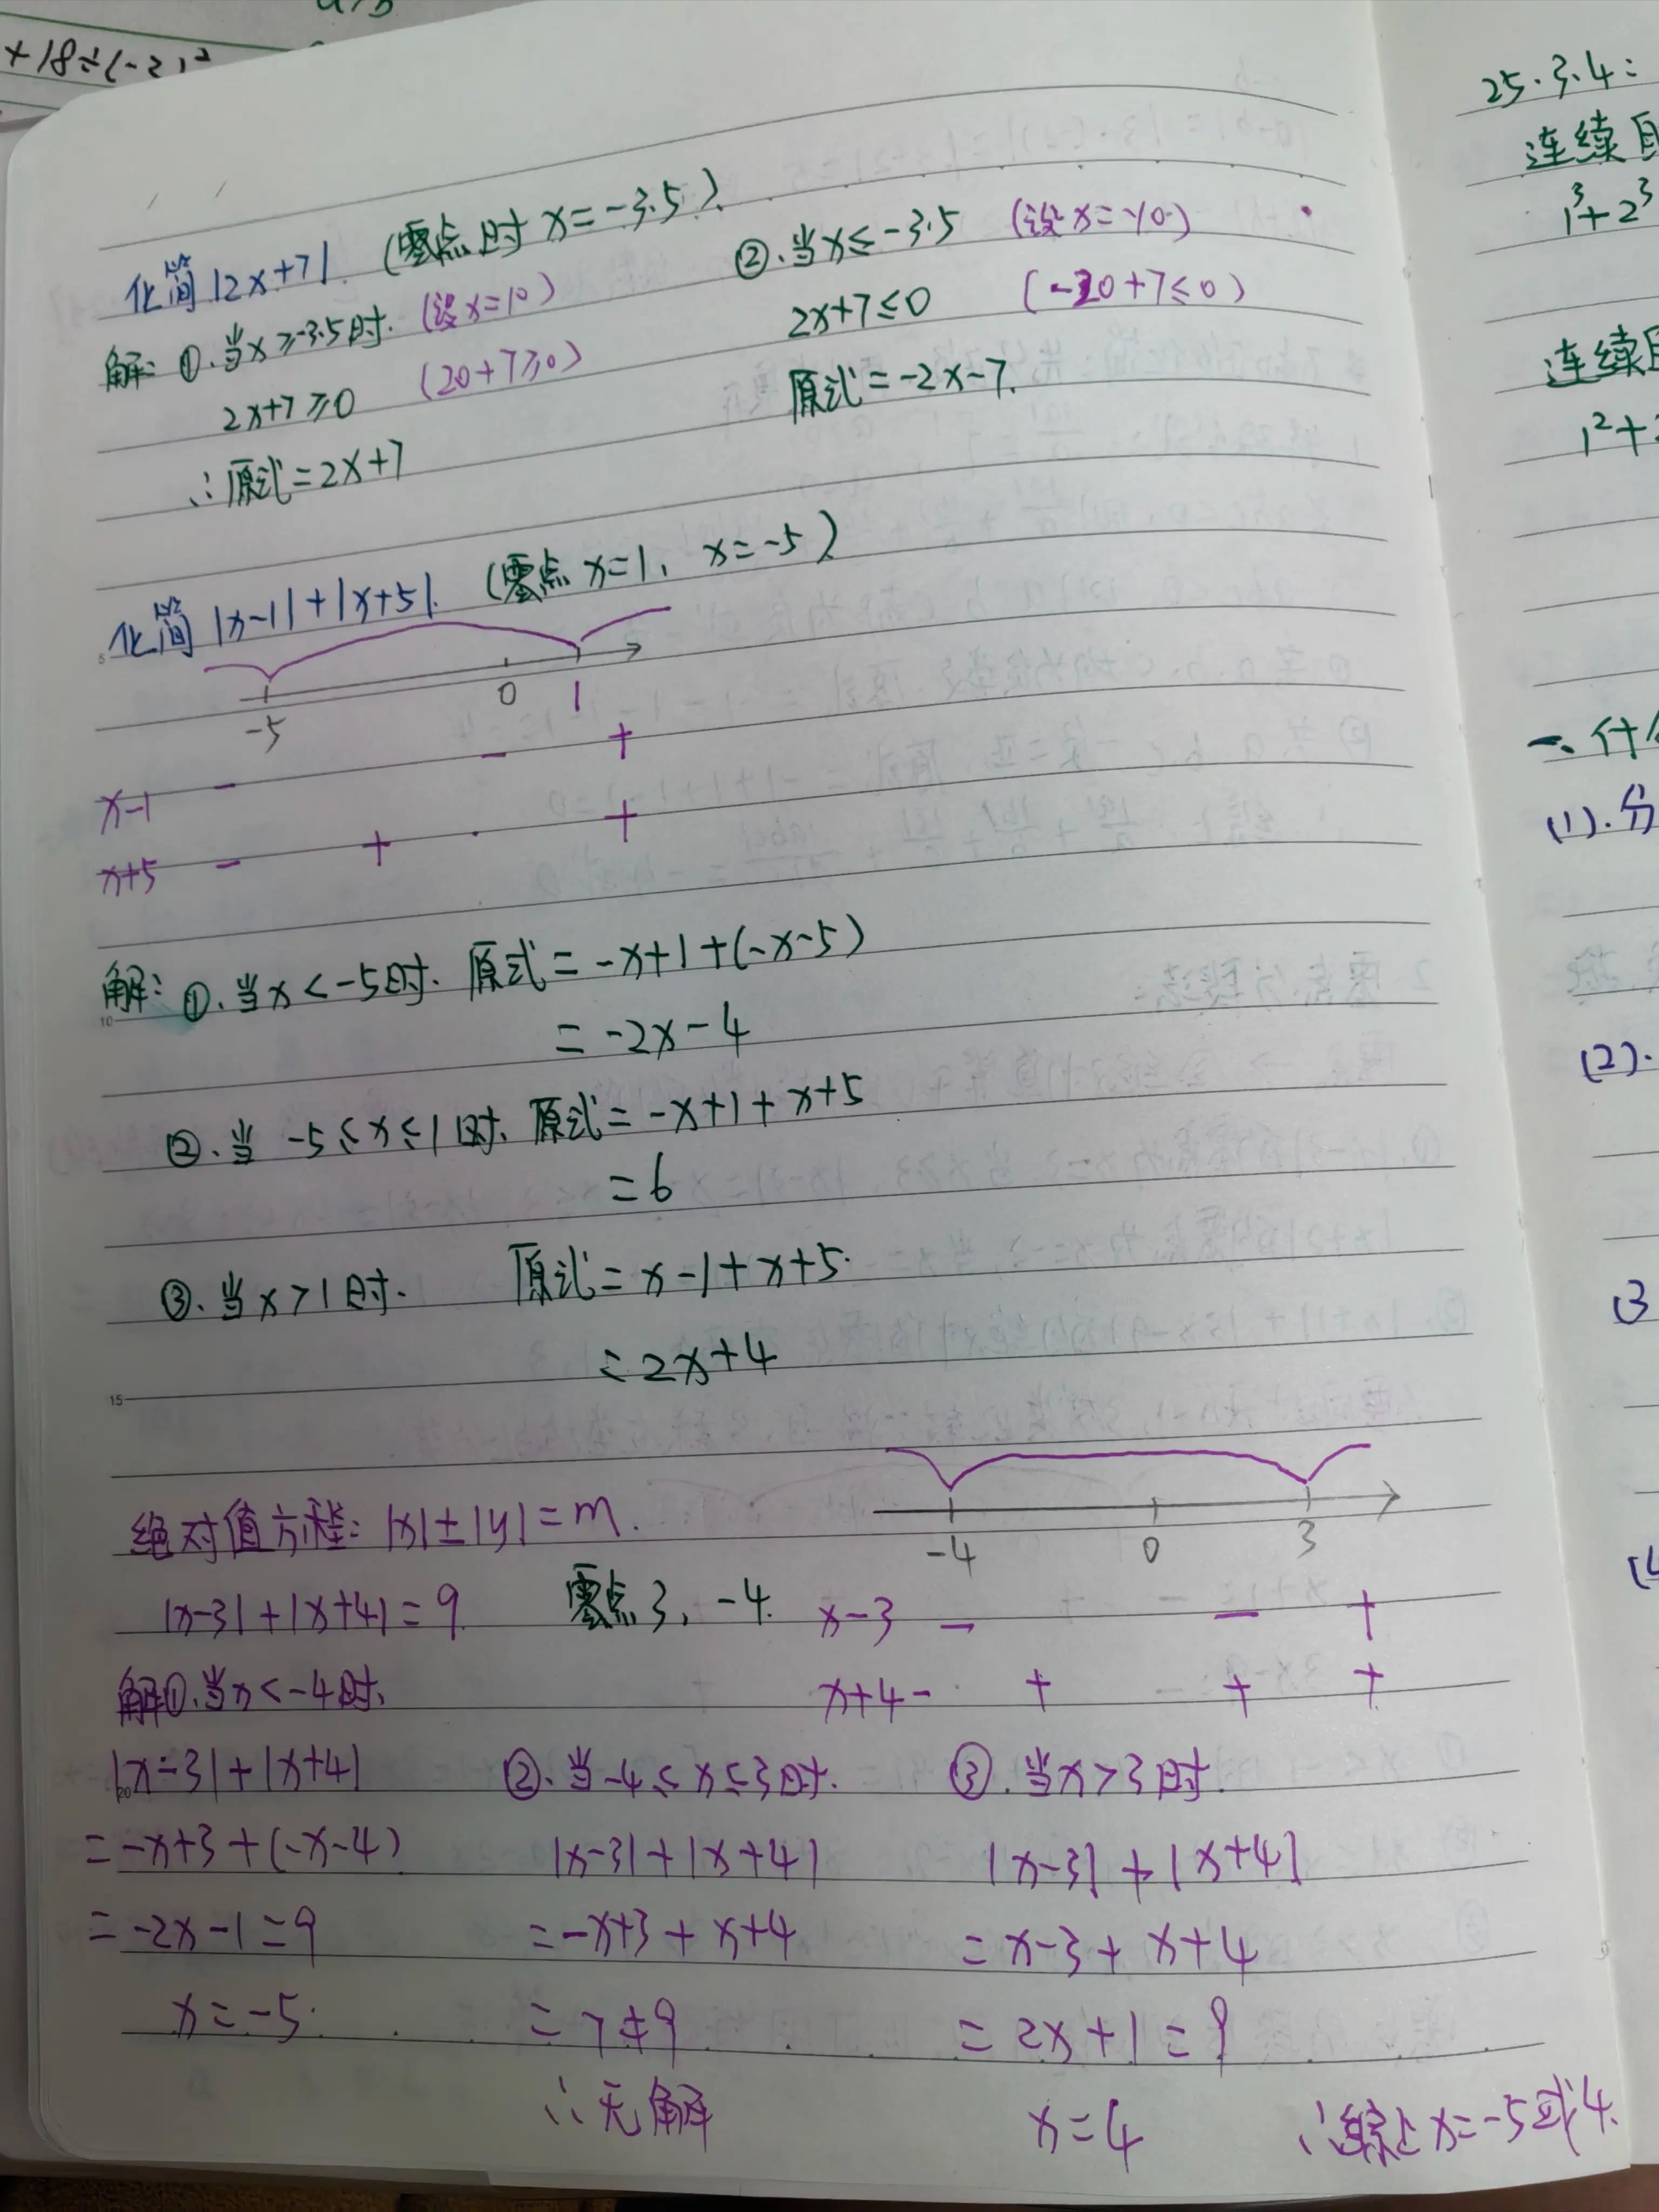 +18÷(-2)²
化简|2x+7|. (零点时 x=-3.5).
解: ①.当x≥-3.5时. (设x=10)
2x+7≥0 (20+7≥0)
∴原式=2x+7
②.当x≤-3.5 (设x=-10)
2x+7≤0 (-20+7≤0)
原式=-2x-7.
化简|x-1|+|x+5|. (零点 x=1, x=-5).
-5 0 1
x-1 - - +
x+5 - + +
解: ①.当x<-5时. 原式=-x+1+(-x-5)
=-2x-4
②.当 -5≤x≤1时. 原式=-x+1+x+5
=6
③.当x>1时. 原式=x-1+x+5.
=2x+4
绝对值方程: |x|±|y|=m.
-4 0 3
|x-3|+|x+4|=9 零点3, -4.
x-3 - - +
x+4 - + + +
解①.当x<-4时.
|x-3|+|x+4|
=-x+3+(-x-4)
=-2x-1=9
x=-5.
②.当-4≤x≤3时.
|x-3|+|x+4|
=-x+3+x+4
=7≠9
∴无解
③.当x>3时.
|x-3|+|x+4|
=x-3+x+4
=2x+1=9
x=4
∴综上x=-5或4.
5
10
15
20
25.3.4:
连续
1³+2³
连续
1²+
一、什
(1).分
(2).
(3